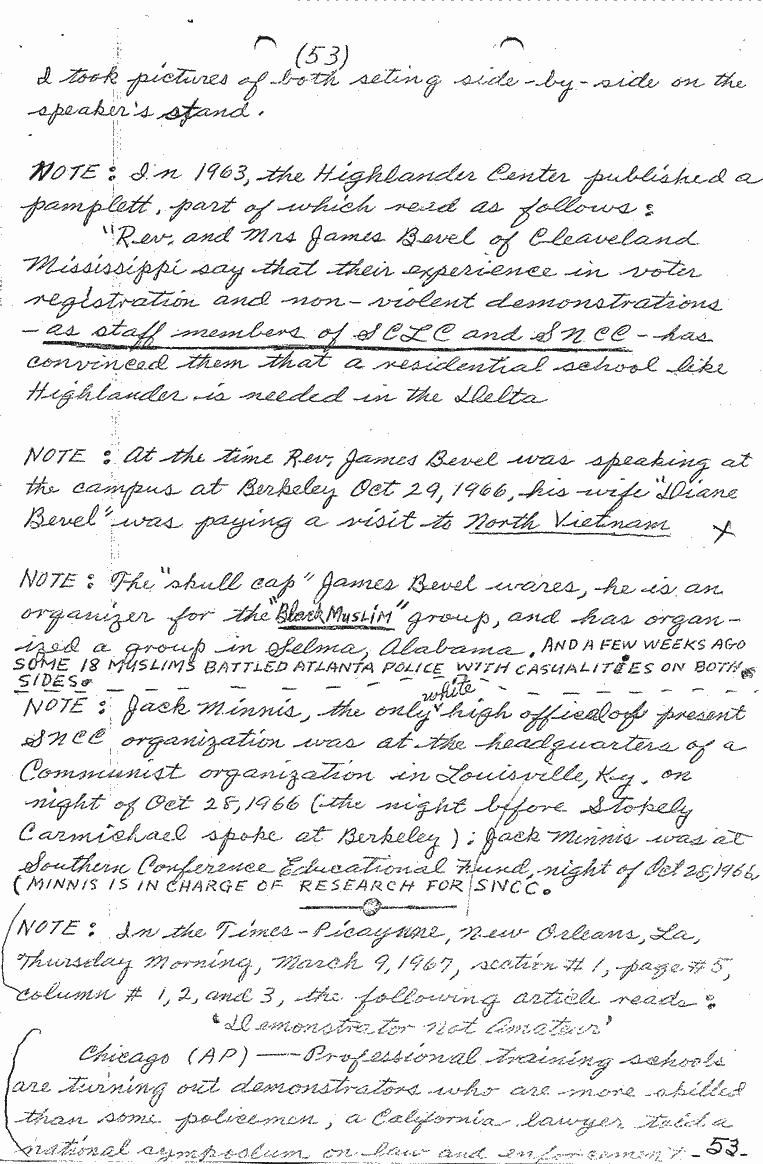 (53)
I took pictures of both seting side-by-side on the
speaker's stand.
NOTE: In 1963, the Highlander Center published a
pamplett, part of which read as follows:
"Rev. and Mrs James Bevel of Cleaveland
Mississippi say that their experience in voter
registration and non-violent demonstrations
-as staff members of SCLC and SNCC-has
convinced them that a residential school like
Highlander is needed in the Delta
NOTE: At the time Rev. James Bevel was speaking at
the campus at Berkeley Oct 29, 1966, his wife "Diane
Bevel" was paying a visit to North Vietnam X
NOTE: The "skull cap" James Bevel wares, he is an
organizer for the "Black Muslim" group, and has organ-
ized a group in Selma, Alabama. AND A FEW WEEKS AGO
SOME 18 MUSLIMS BATTLED ATLANTA POLICE WITH CASUALITIES ON BOTH
SIDES.
NOTE: Jack Minnis, the only white high offical of present
SNCC organization was at the headquarters of a
Communist organization in Louisville, Ky. on
night of Oct 28, 1966 (the night before Stokely
Carmichael spoke at Berkeley); Jack Minnis was at
Southern Conference Educational Fund, night of Oct 28, 1966,
(MINNIS IS IN CHARGE OF RESEARCH FOR SNCC.
NOTE: In the Times-Picayune, New Orleans, La,
Thursday Morning, March 9, 1967, section #1, page #5,
column # 1, 2, and 3, the following article reads:
'Demonstrator not Amateur'
Chicago (AP) — Professional training schools
are turning out demonstrators who are more skilled
than some policemen, a California lawyer told a
national symposium on law and enforcement -53-